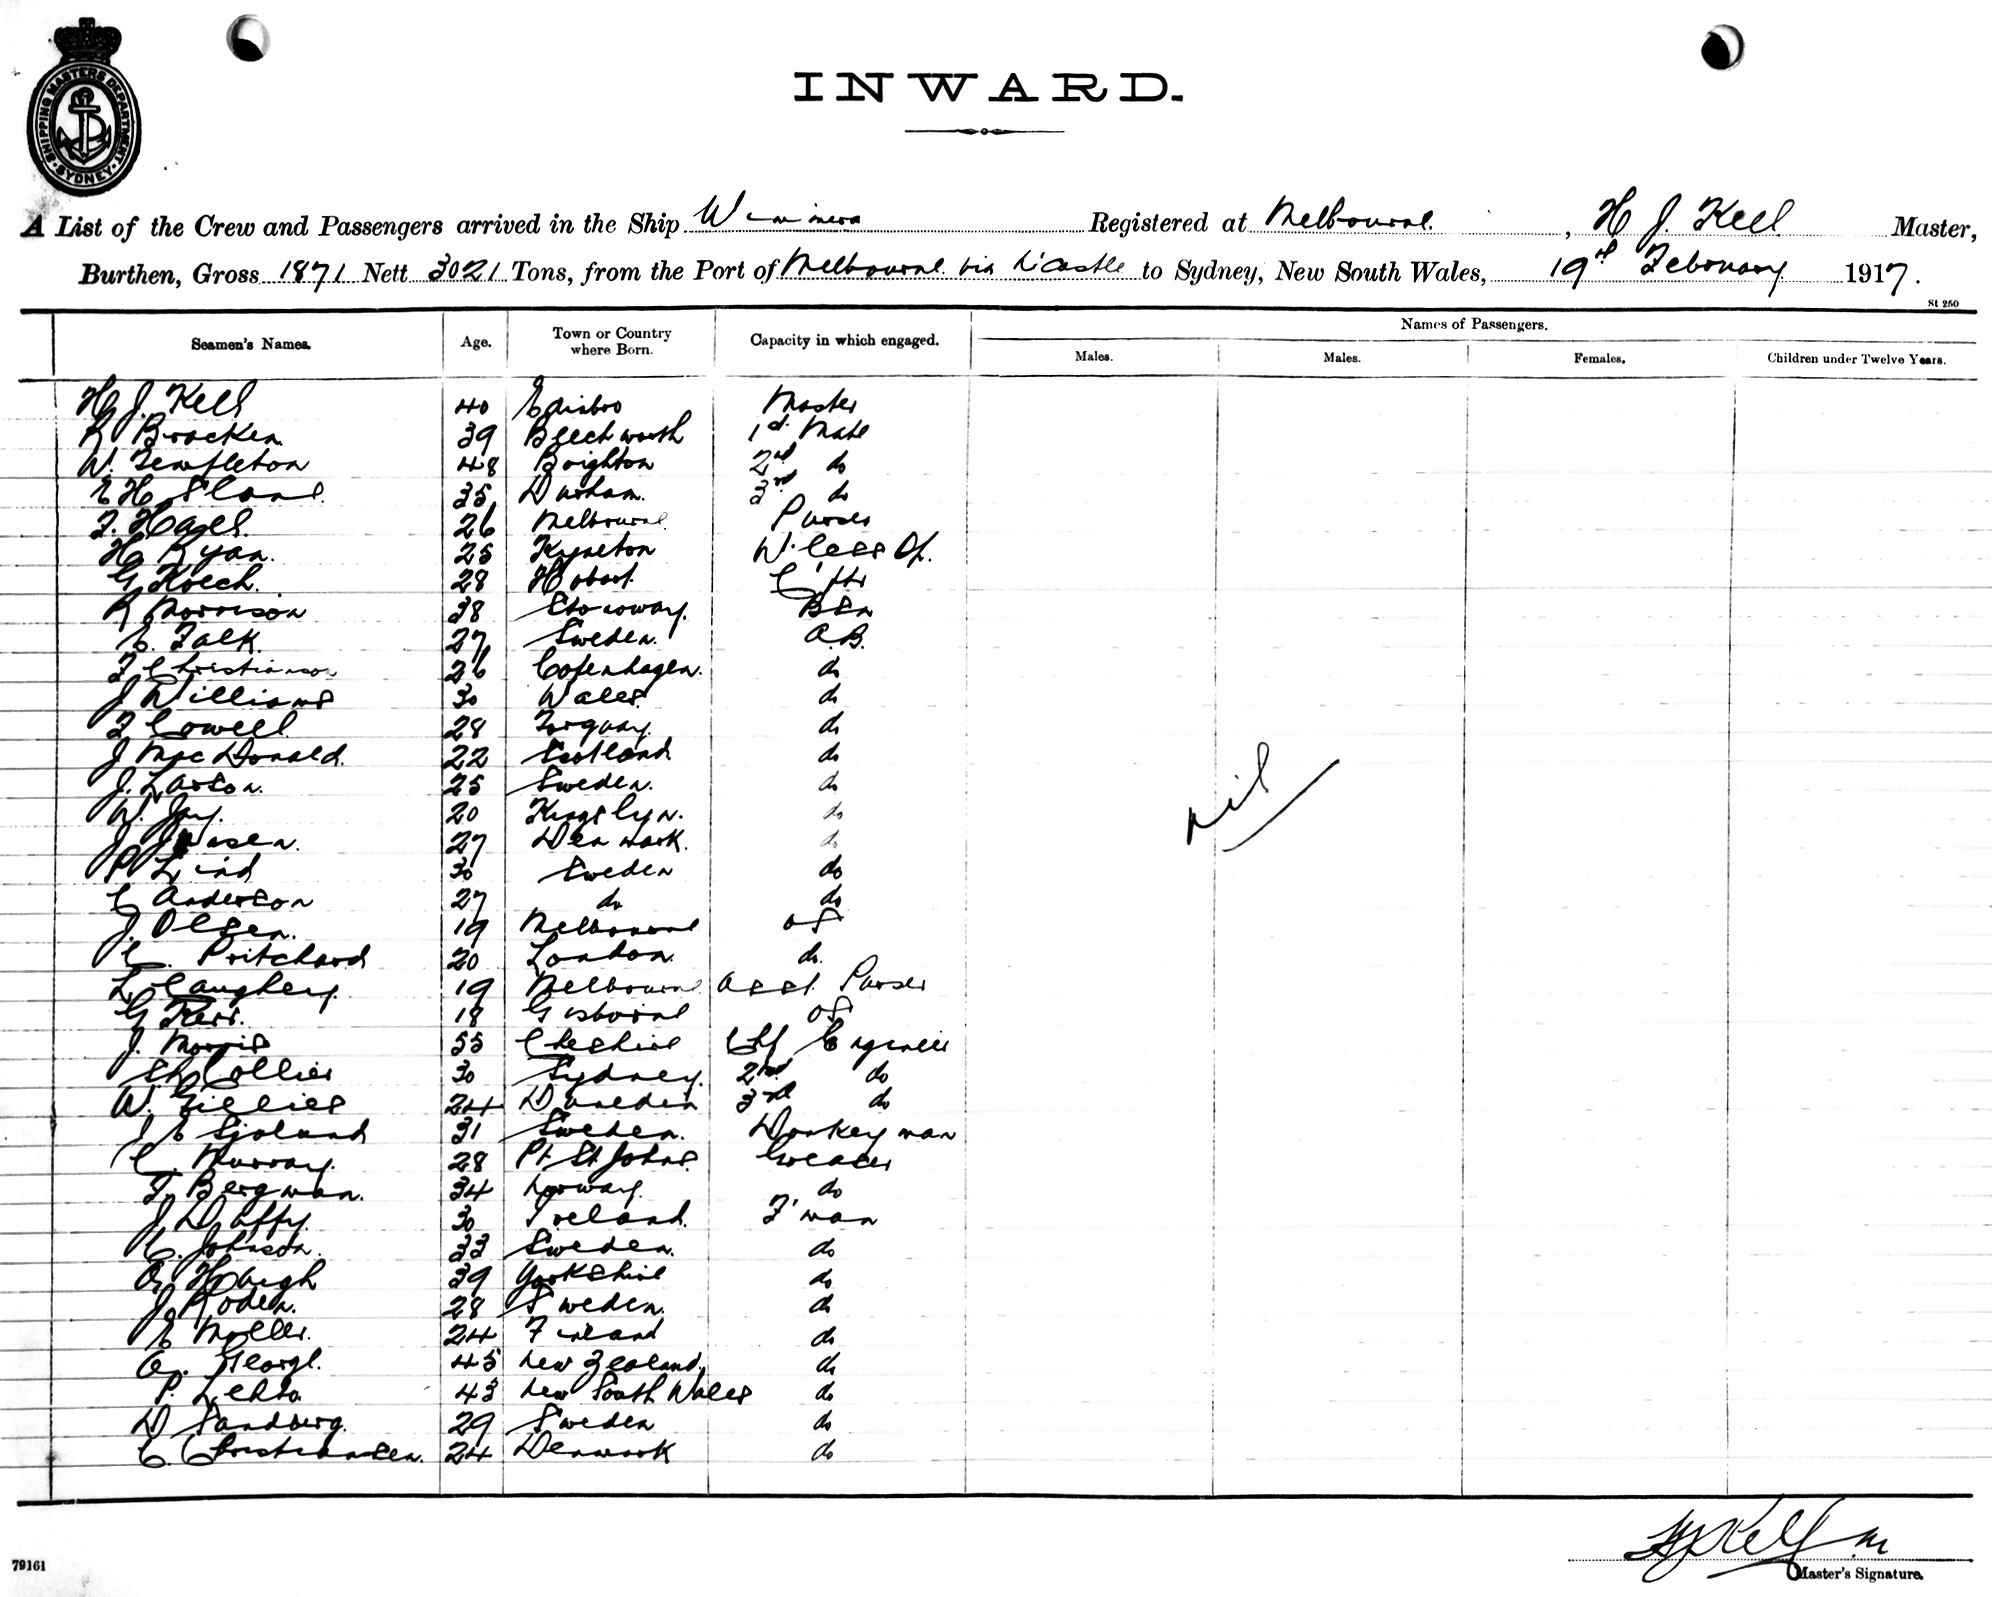 SHIPPING MASTERS DEPARTMENT
SYDNEY
INWARD.
A List of the Crew and Passengers arrived in the Ship Wimmera Registered at Melbourne. , H J. Kell Master,
Burthen, Gross 1871 Nett 3021 Tons, from the Port of Melbourne via N'Castle to Sydney, New South Wales, 19th February 1917.
St 250
Seamen's Names. Age. Town or Country where Born. Capacity in which engaged. Names of Passengers.
Males. Males. Females. Children under Twelve Years.
H J. Kell 40 Edinbro Master
R Bracken 39 Beechworth 1st Mate
W. Templeton 48 Brighton 2nd do
E H Sloane 35 Durham. 3rd do
F. Hayes 26 Melbourne. Purser
H Ryan. 25 Kyneton W.less Op.
G Keech. 28 Hobart C'ptr
R Morrison 38 Stornoway. Bsn
E. Falk. 27 Sweden. A.B.
F Christianson 26 Copenhagen. do
J Williams 30 Wales. do
F Cowell 28 Torquay. do
J MacDonald. 22 Scotland do
J. Larson. 25 Sweden. do
W. Jay. 20 Kingslyn. do
J 27 Denmark. do
P Lind 30 Sweden do
C Anderson 27 do do
J. Olsen. 19 Melbourne OS
C. Pritchard 20 London. do.
L Caughey. 19 Melbourne. Asst. Purser
G Kerr. 18 Gisborne OS
J. Morris 55 Cheshire Chf Engineer
Collier 30 Sydney. 2nd do
W. Gillies 24 Dunedin 3rd do
J E Sjolund 31 Sweden. Donkeyman
C. Murray. 28 Pt St Johns. Greaser
F. Bergman. 34 Norway. do
J Duffy. 30 Ireland. F'man
C. Johnson. 33 Sweden. do
A. Haigh 39 Yorkshire do
J. Roden. 28 Sweden. do
E Moller. 24 Finland do
A. George. 45 New Zealand. do
P. Lehto. 43 New South Wales do
D Sandberg. 29 Sweden do
C. Christiansen. 24 Denmark do
Nil
HJKell m
79161
Master's Signature.